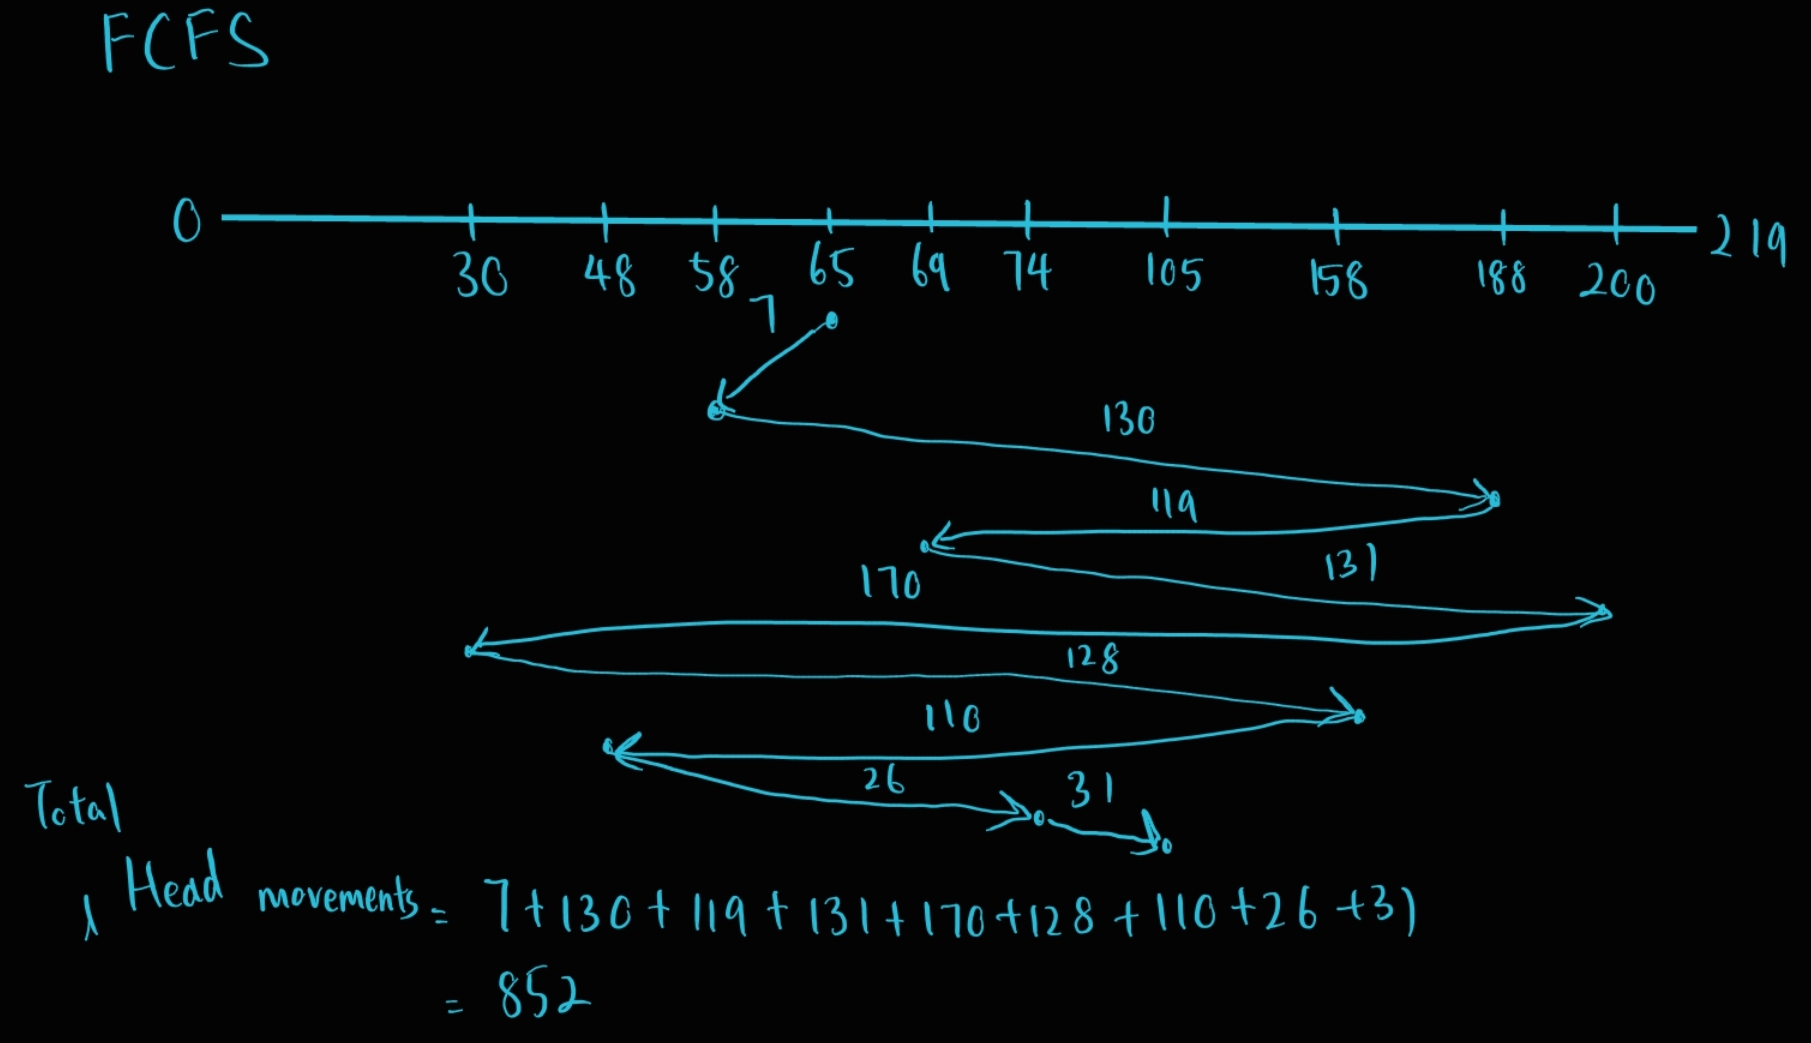 FCFS
0 219
30 48 58 65 69 74 105 158 188 200
7
130
119
131
170
128
110
26 31
Total
Head movements = 7+130+119+131+170+128+110+26+31
= 852